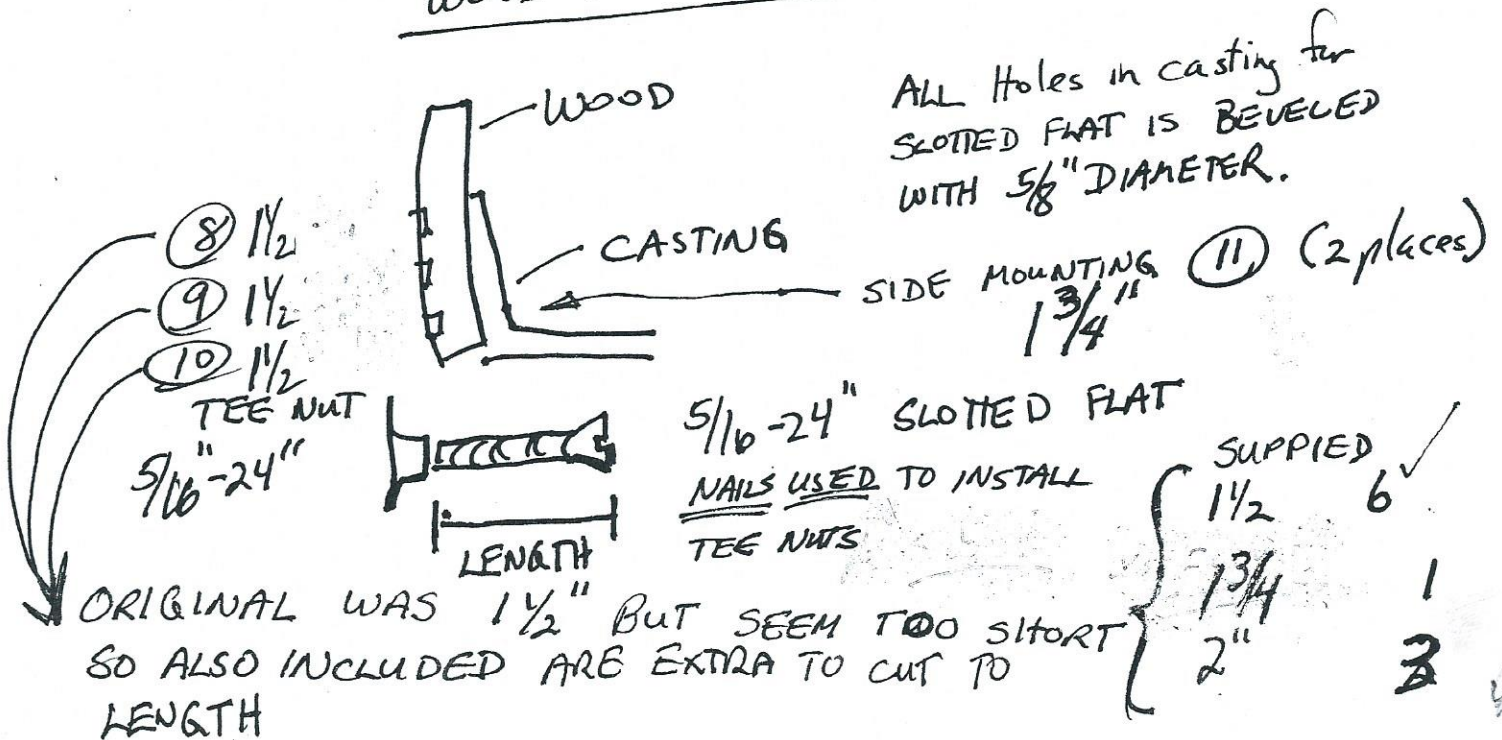 WOOD
ALL Holes in casting for
SLOTTED FLAT IS BEVELED
WITH 5/8" DIAMETER.
CASTING
SIDE MOUNTING 11 (2 places)
1 3/4"
8 1 1/2
9 1 1/2
10 1 1/2
TEE NUT
5/16"-24"
5/16-24" SLOTTED FLAT
NAILS USED TO INSTALL
TEE NUTS
LENGTH
SUPPIED
1 1/2 6 ✓
1 3/4 1
2" 3
ORIGINAL WAS 1 1/2" BUT SEEM TOO SHORT
SO ALSO INCLUDED ARE EXTRA TO CUT TO
LENGTH